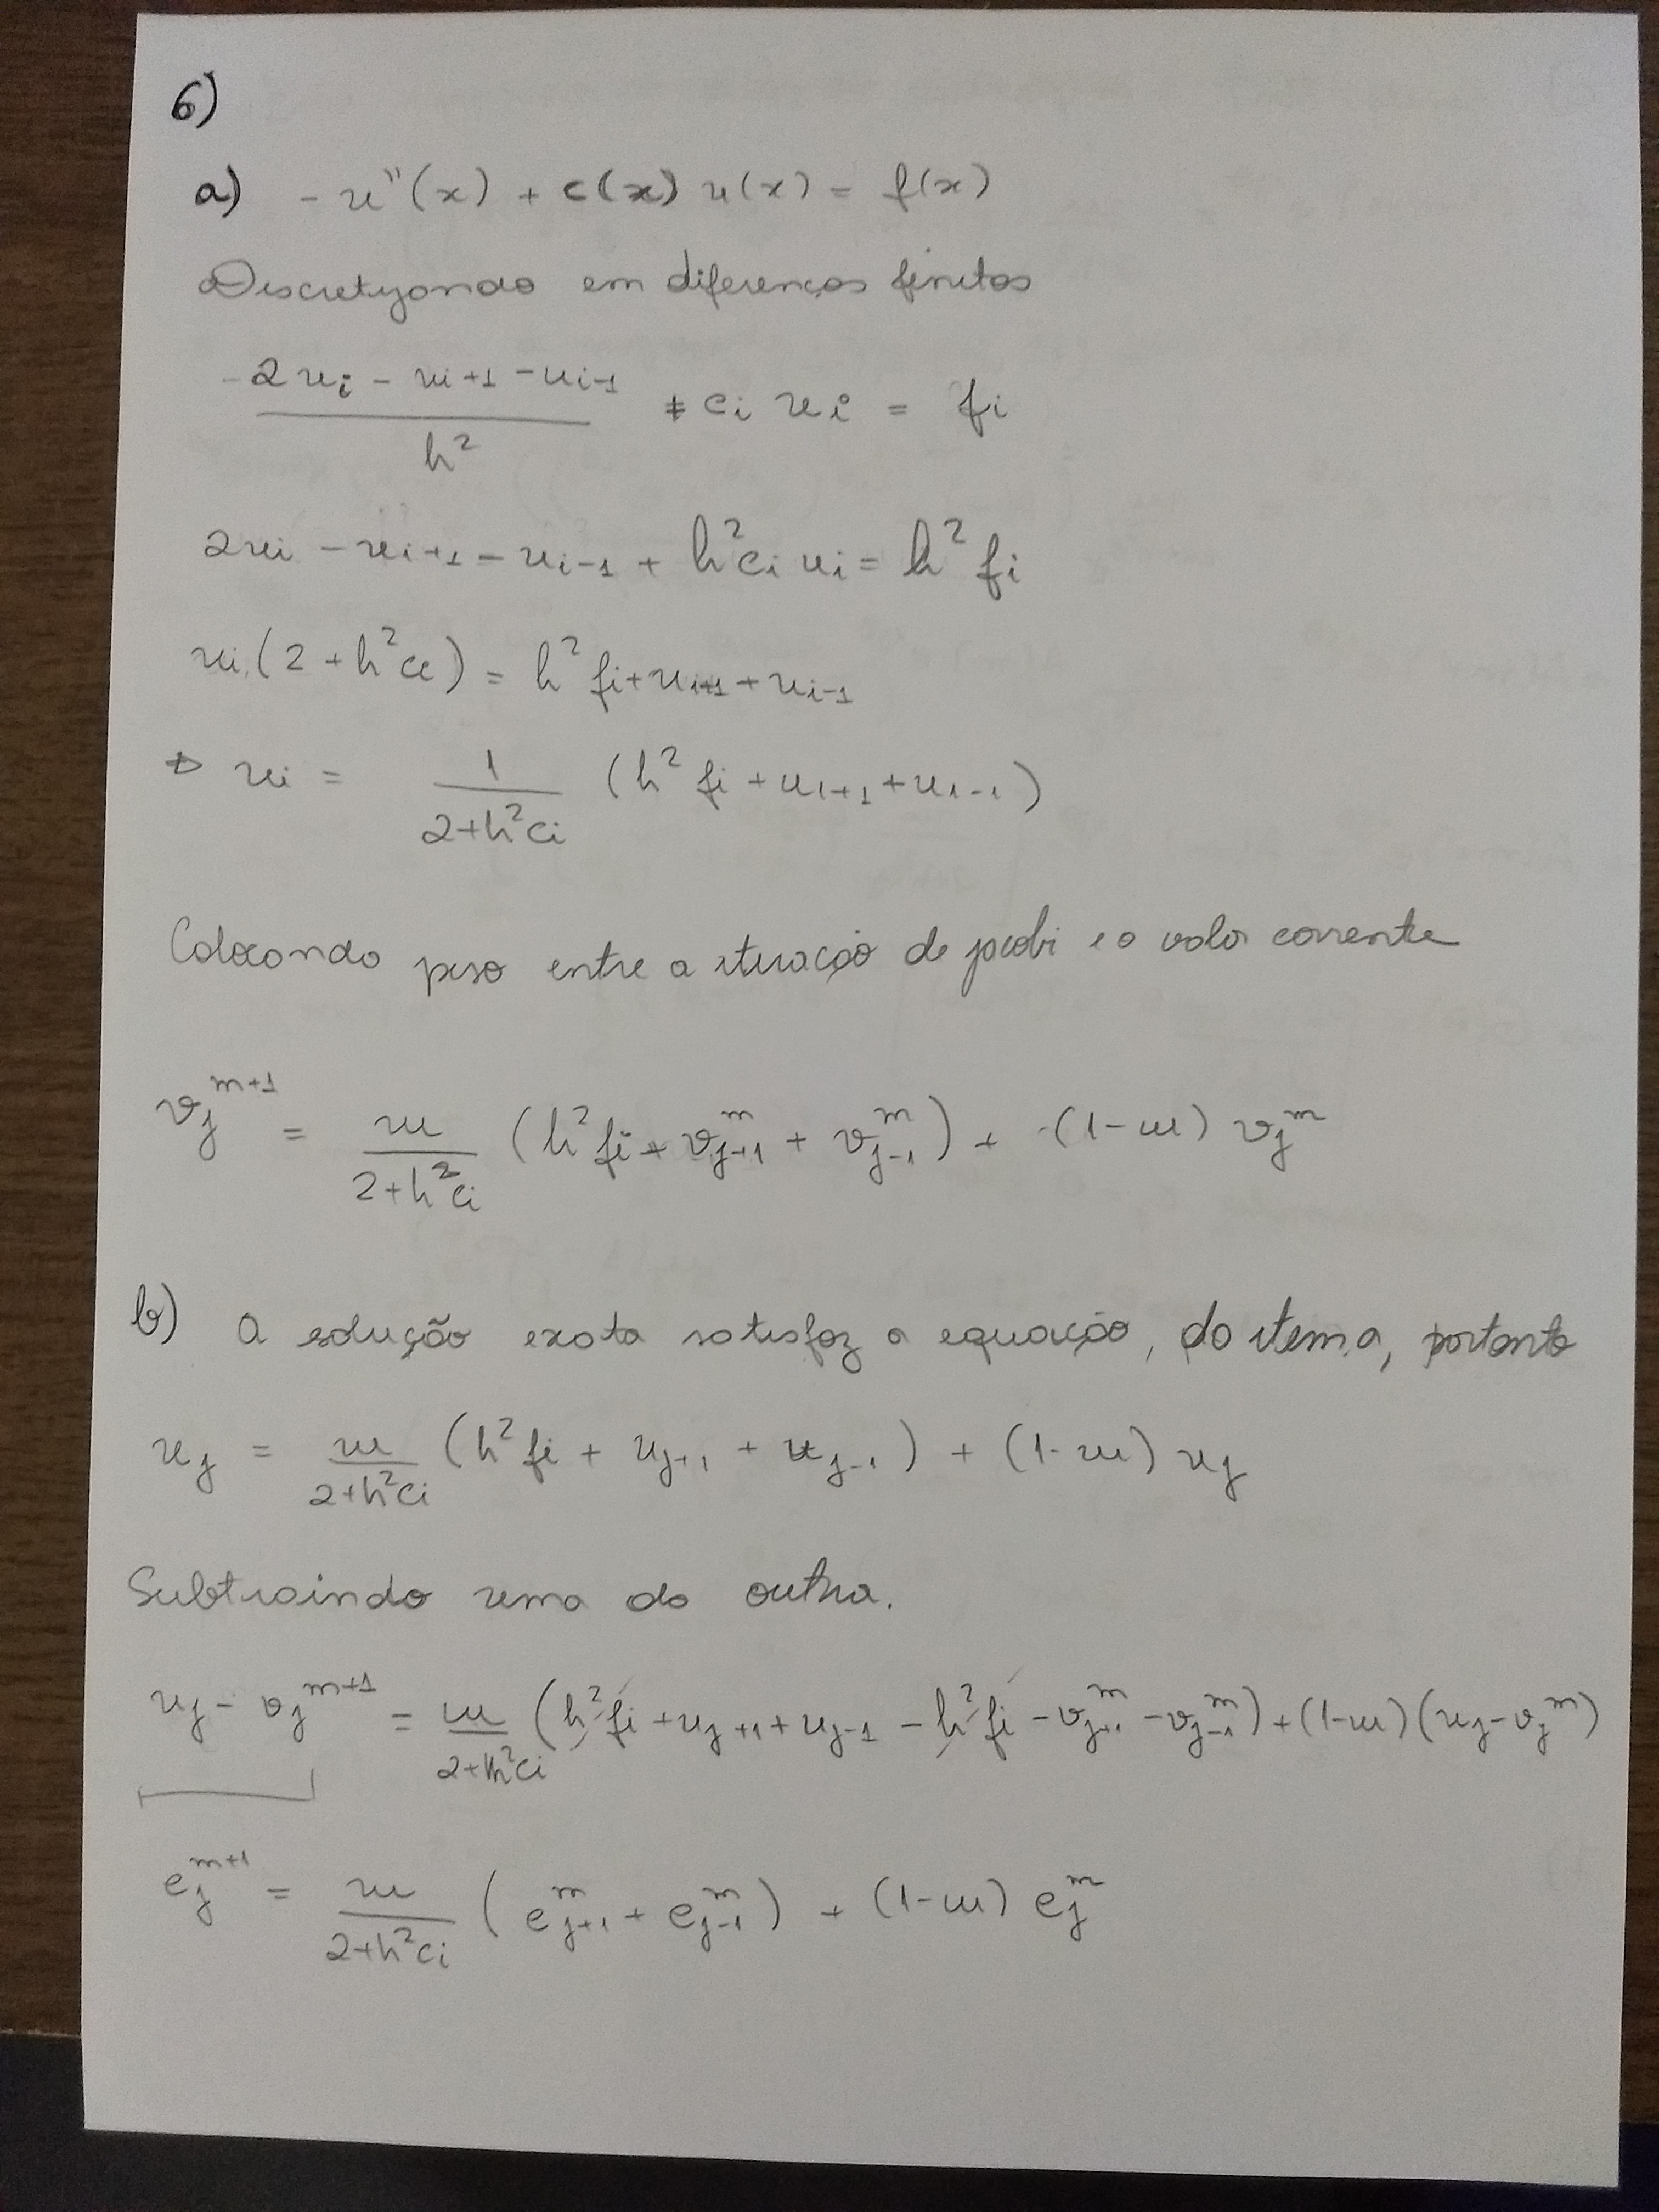 6)
a) - u''(x) + c(x) u(x) = f(x)
Discretizando em diferenças finitas
(2ui - ui+1 - ui-1)/h² + ci ui = fi
2ui - ui+1 - ui-1 + h²ci ui = h² fi
ui (2 + h²ci) = h² fi + ui+1 + ui-1
⇒ ui = 1/(2+h²ci) (h² fi + ui+1 + ui-1)
Colocando peso entre a iteração de jacobi e o valor corrente
vj^(m+1) = w/(2+h²ci) (h² fi + vj+1^m + vj-1^m) + (1-w) vj^m
b) A solução exata satisfaz a equação, do item a, portanto
uj = w/(2+h²ci) (h² fi + uj+1 + uj-1) + (1-w) uj
Subtraindo uma da outra.
uj - vj^(m+1) = w/(2+h²ci) (h² fi + uj+1 + uj-1 - h² fi - vj+1^m - vj-1^m) + (1-w)(uj - vj^m)
ej^(m+1) = w/(2+h²ci) (ej+1^m + ej-1^m) + (1-w) ej^m